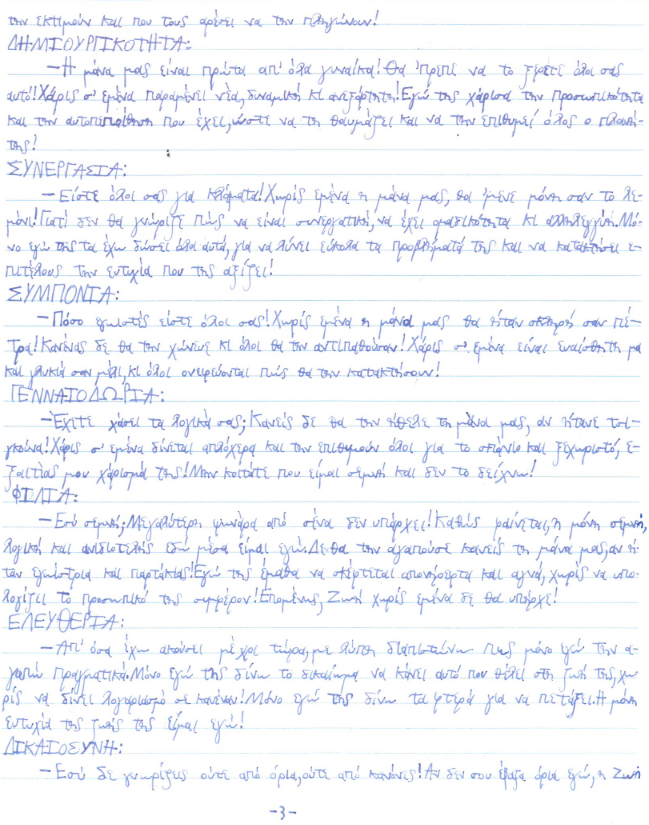 την εκτιμούν και που τους αρέσει να την πληγώνουν!
ΔΗΜΙΟΥΡΓΙΚΟΤΗΤΑ:
—Η μάνα μας είναι πρώτα απ' όλα γυναίκα! Θα 'πρεπε να το ξέρετε όλοι σας
αυτό! Χάρις σ' εμένα παραμένει νέα, δυναμική κι ανεξάρτητη! Εγώ της χάρισα την προσωπικότητα
και την αυτοπεποίθηση που έχει, ώστε να τη θαυμάζει και να την επιθυμεί όλος ο πλανή-
της!
ΣΥΝΕΡΓΑΣΙΑ:
—Είστε όλοι σας για κλάματα! Χωρίς εμένα η μάνα μας, θα 'μενε μόνη σαν το λε-
μόνι! Γιατί δεν θα γνώριζε πώς να είναι συνεργατική, να έχει ομαδικότητα κι αλληλεγγύη. Μό-
νο εγώ της τα έχω δώσει όλα αυτά, για να λύνει εύκολα τα προβλήματά της και να κατακτήσει ε-
πιτέλους την ευτυχία που της αξίζει!
ΣΥΜΠΟΝΙΑ:
—Πόσο εγωιστές είστε όλοι σας! Χωρίς εμένα η μάνα μας θα ήταν σκληρή σαν πέ-
τρα! Κανένας δε θα την χώνευε κι όλοι θα την αντιπαθούσαν! Χάρις σ' εμένα είναι ευαίσθητη μα
και γλυκιά σαν μέλι, κι όλοι ονειρεύονται πώς θα την κατακτήσουν!
ΓΕΝΝΑΙΟΔΩΡΙΑ:
—Έχετε χάσει τα λογικά σας; Κανείς δε θα την ήθελε τη μάνα μας, αν ήτανε τσι-
γκούνα! Χάρις σ' εμένα δίνεται απλόχερα και την επιθυμούν όλοι για το σπάνιο και ξεχωριστό, ε-
ξαιτίας μου χάρισμά της! Μην κοιτάτε που είμαι σεμνή και δεν το δείχνω!
ΦΙΛΙΑ:
—Εσύ σεμνή; Μεγαλύτερη ψωνάρα από σένα δεν υπάρχει! Καθώς φαίνεται, η μόνη σεμνή,
λογική και ανιδιοτελής εδώ μέσα είμαι εγώ. Δε θα την αγαπούσε κανείς τη μάνα μας, αν ή-
ταν εγωίστρια και παρτάκιας! Εγώ της έμαθα να σκέφτεται απονήρευτα και αγνά, χωρίς να υπο-
λογίζει το προσωπικό της συμφέρον! Επομένως, Ζωή χωρίς εμένα δε θα υπήρχε!
ΕΛΕΥΘΕΡΙΑ:
—Απ' όσα έχω ακούσει μέχρι τώρα, με λύπη διαπιστώνω πως μόνο εγώ την α-
γαπώ πραγματικά. Μόνο εγώ της δίνω το δικαίωμα να κάνει αυτό που θέλει στη ζωή της, χω-
ρίς να δίνει λογαριασμό σε κανέναν! Μόνο εγώ της δίνω τα φτερά για να πετάξει. Η μόνη
ευτυχία της ζωής της είμαι εγώ!
ΔΙΚΑΙΟΣΥΝΗ:
—Εσύ δε γνωρίζεις ούτε από όρια, ούτε από κανόνες! Αν δεν σου έβαζα όρια εγώ, η Ζωή
-3-